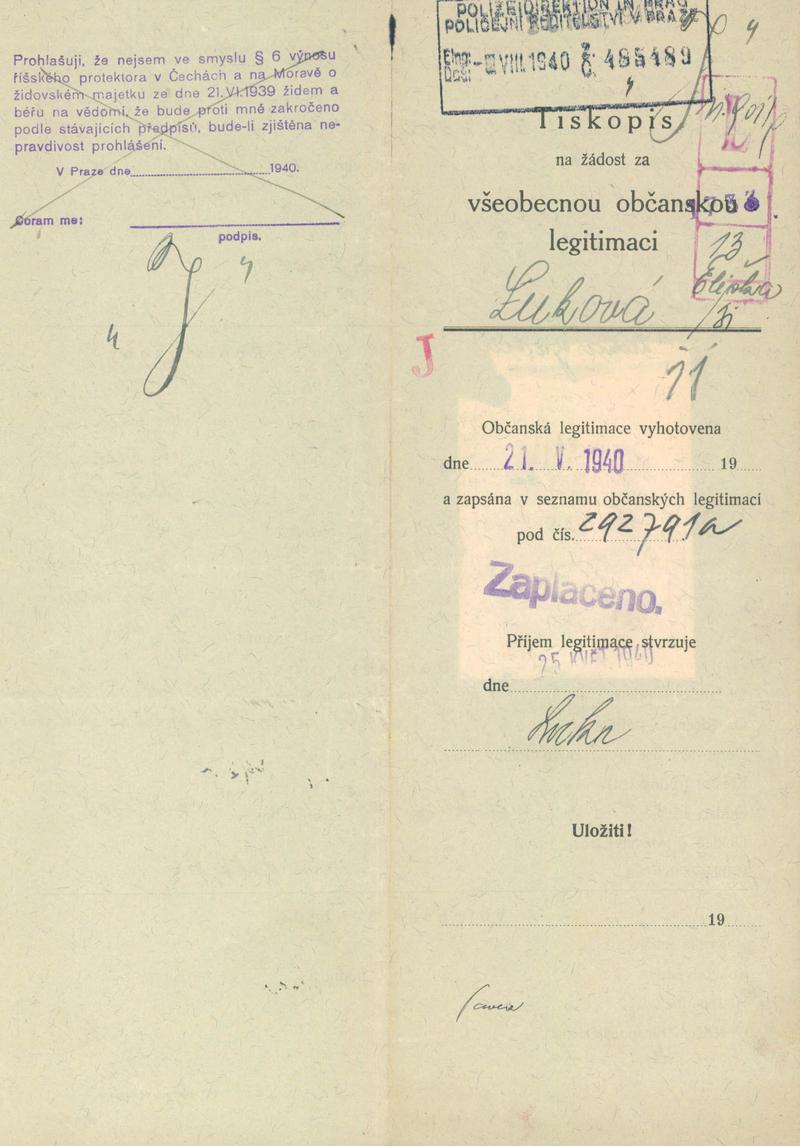 Prohlašuji, že nejsem ve smyslu § 6 výnosu
říšského protektora v Čechách a na Moravě o
židovském majetku ze dne 21.VI.1939 židem a
béřu na vědomí, že bude proti mně zakročeno
podle stávajících předpisů, bude-li zjištěna ne-
pravdivost prohlášení.
V Praze dne 1940.
Coram me:
podpis.
J
POLIZEIDIREKTION IN PRAG
POLICEJNÍ ŘEDITELSTVÍ V PRAZE
VIII.1940 Č 485489
Tiskopis
na žádost za
všeobecnou občanskou
legitimaci
13
Luková Eliška
J
11
Občanská legitimace vyhotovena
dne 21. V. 1940 19
a zapsána v seznamu občanských legitimací
pod čís. 292791a
Zaplaceno.
Příjem legitimace stvrzuje
25 KVĚT 1940
dne
Uložiti!
19